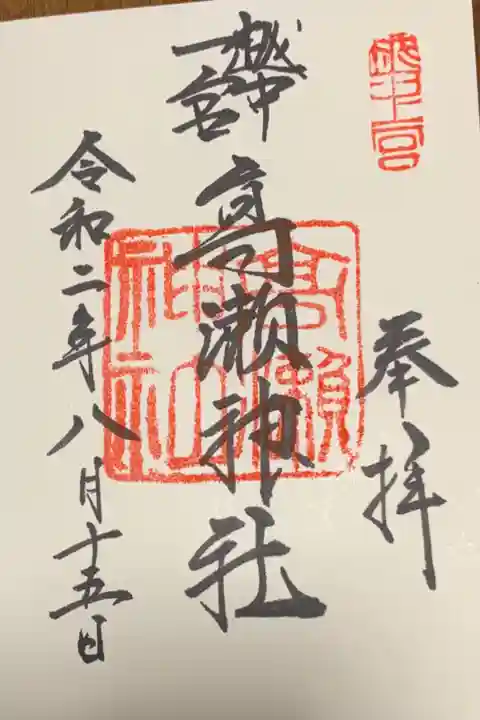 奉拝
越中
一宮
高瀬神社
高瀬
神社
令和二年八月十五日